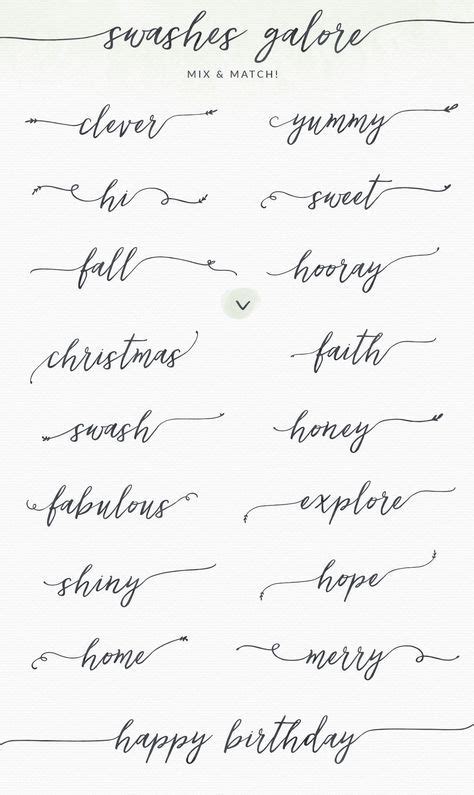 swashes galore
MIX & MATCH!
clever yummy
hi sweet
fall hooray
christmas faith
swash honey
fabulous explore
shiny hope
home merry
happy birthday